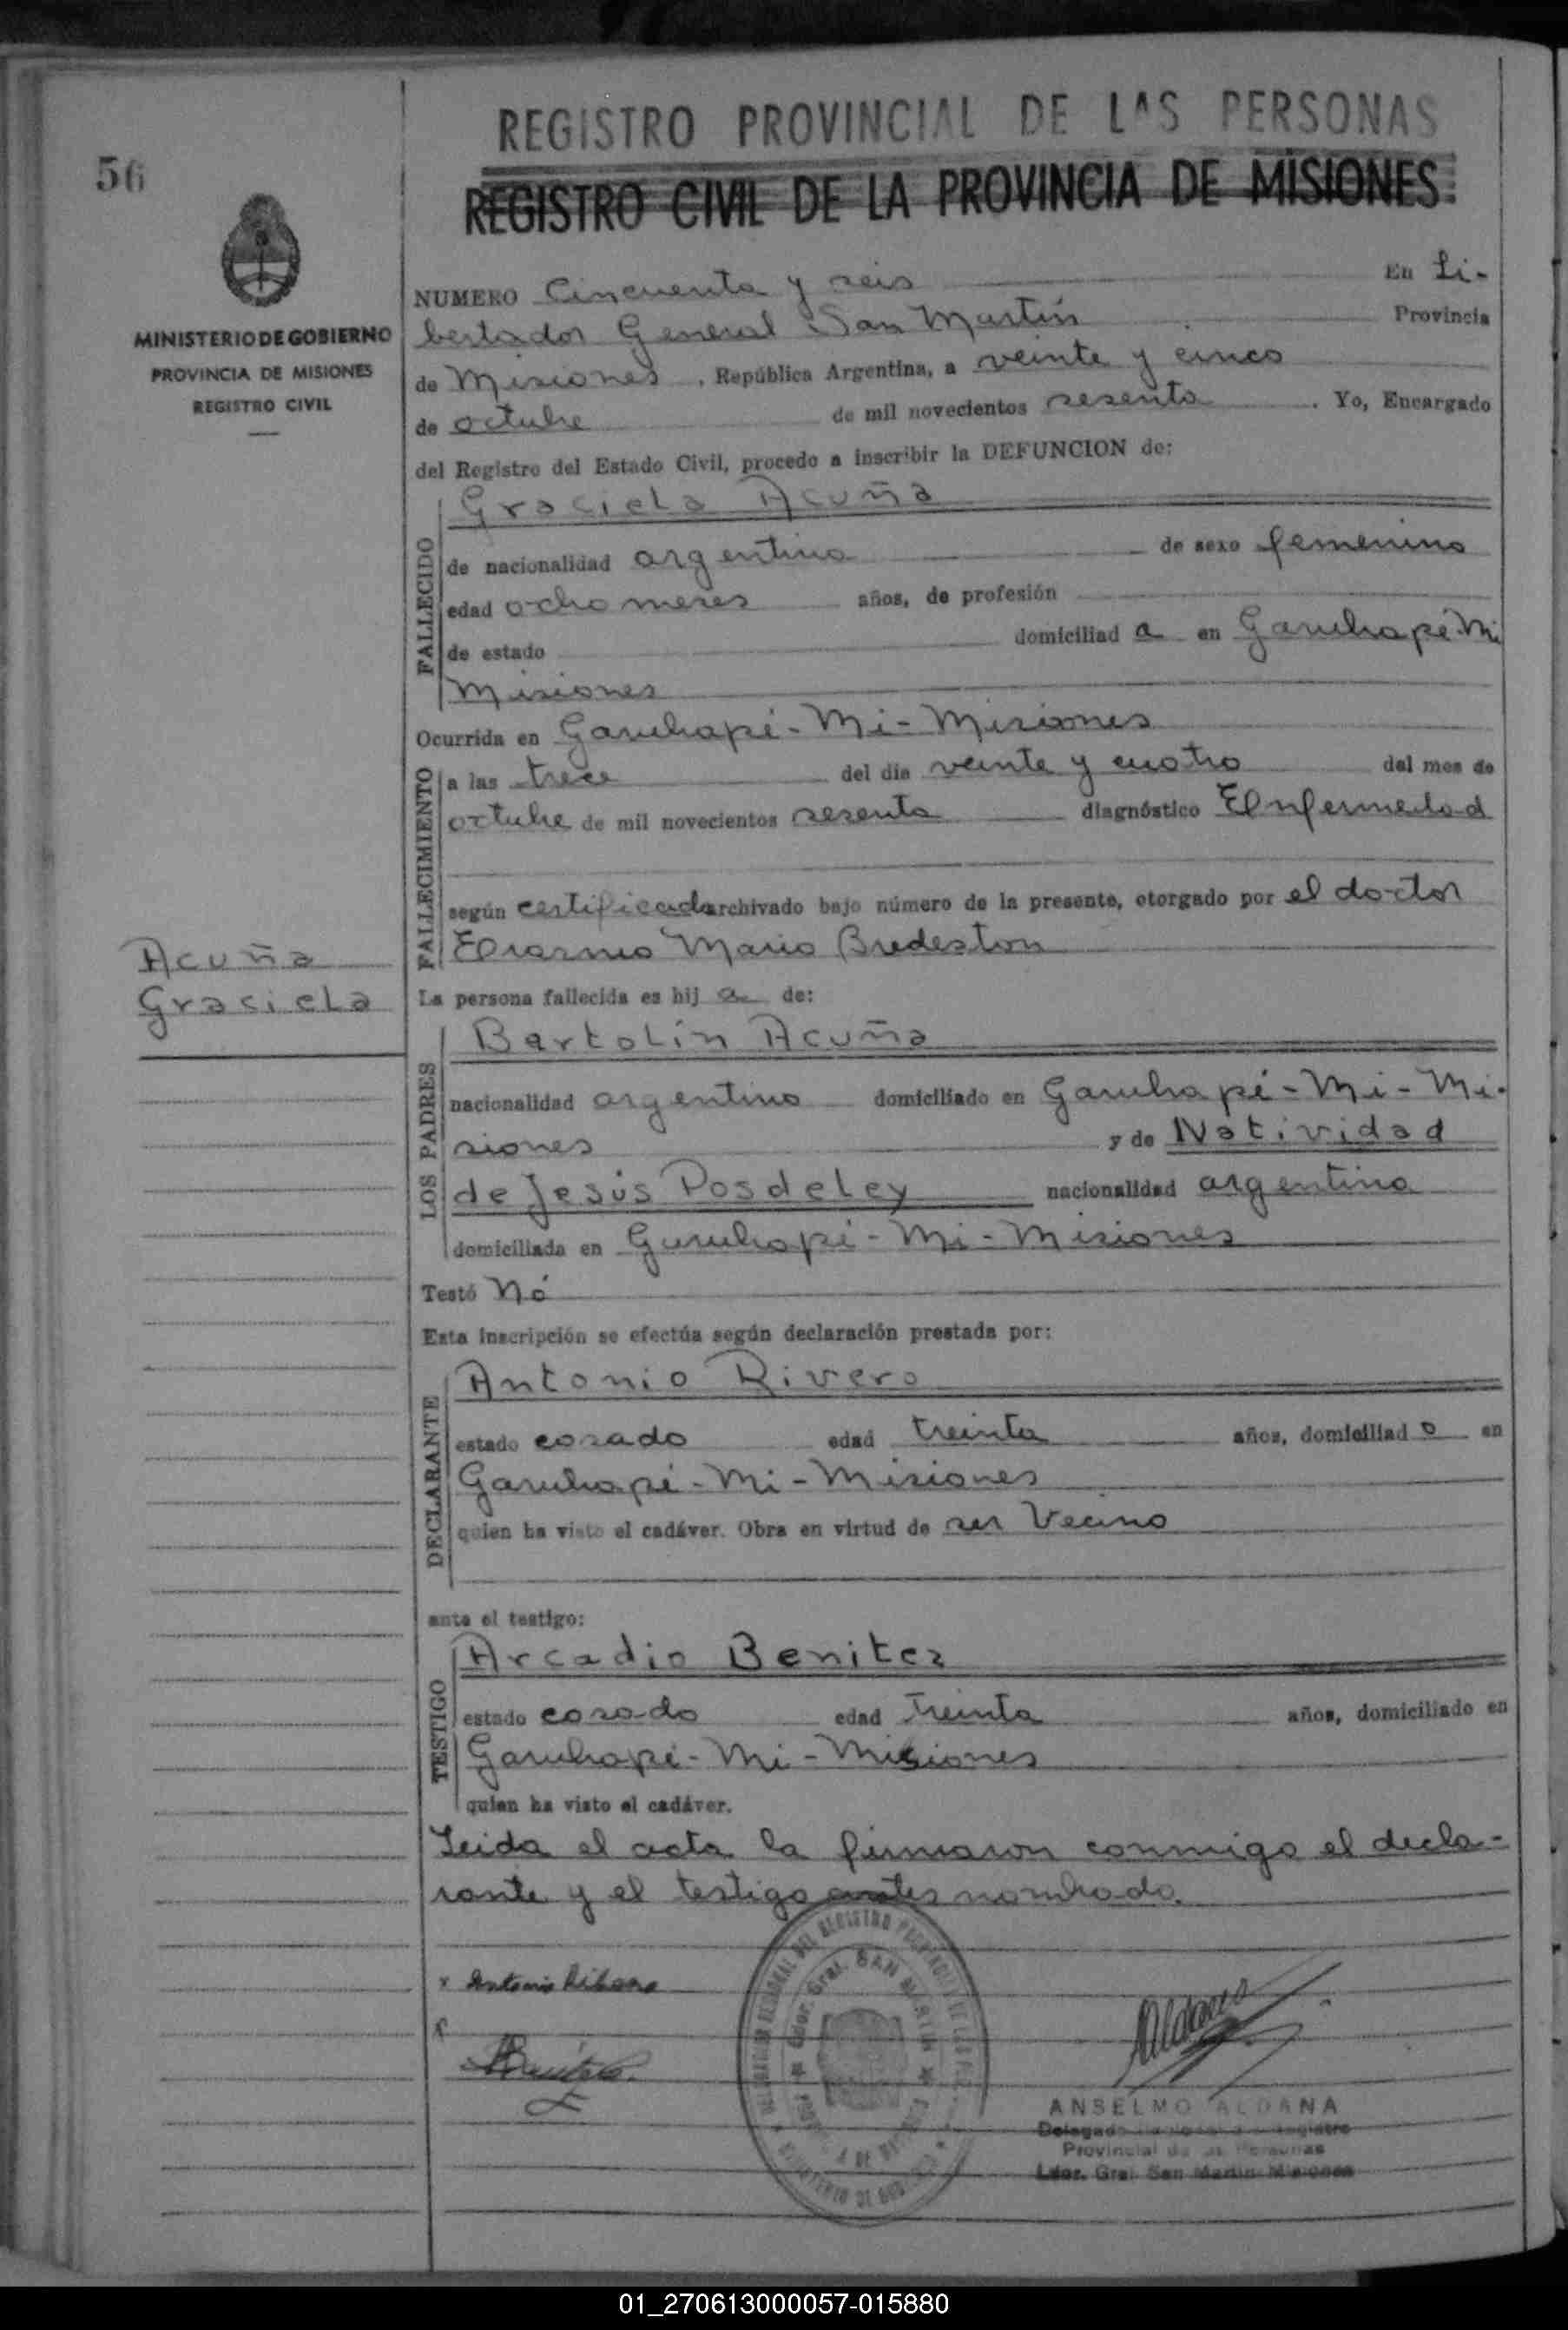 56
REGISTRO PROVINCIAL DE LAS PERSONAS
REGISTRO CIVIL DE LA PROVINCIA DE MISIONES.
MINISTERIO DE GOBIERNO
PROVINCIA DE MISIONES
REGISTRO CIVIL
NUMERO Cincuenta y seis En Li-
bertador General San Martín Provincia
de Misiones, República Argentina, a veinte y cinco
de octubre de mil novecientos sesenta. Yo, Encargado
del Registro del Estado Civil, procedo a inscribir la DEFUNCION de:
FALLECIDO
Graciela Acuña
de nacionalidad argentina de sexo femenino
edad ocho meses años, de profesión
de estado domiciliad a en Garuhapé-Mi
Misiones
Ocurrida en Garuhapé-Mi-Misiones
FALLECIMIENTO
a las trece del día veinte y cuatro del mes de
octubre de mil novecientos sesenta diagnóstico Enfermedad
según certificado archivado bajo número de la presente, otorgado por el doctor
Erasmo Mario Bredeston
Acuña
Graciela
La persona fallecida es hij a de:
LOS PADRES
Bartolín Acuña
nacionalidad argentino domiciliado en Garuhapé-Mi-Mi-
siones y de Natividad
de Jesús Posdeley nacionalidad argentina
domiciliada en Garuhapé-Mi-Misiones
Testó Nó
Esta inscripción se efectúa según declaración prestada por:
DECLARANTE
Antonio Rivero
estado casado edad treinta años, domiciliad o en
Garuhapé-Mi-Misiones
quien ha visto el cadáver. Obra en virtud de ser Vecino
ante el testigo:
TESTIGO
Arcadio Benitez
estado casado edad Treinta años, domiciliado en
Garuhapé-Mi-Misiones
quien ha visto el cadáver.
Leida el acta la firmaron conmigo el decla-
rante y el testigo antes nombrado.
x Antonio Ribero
x
ABenitez
Aldana
ANSELMO ALDANA
Provincial de las Personas
Ldor. Gral. San Martín Misiones
01_270613000057-015880